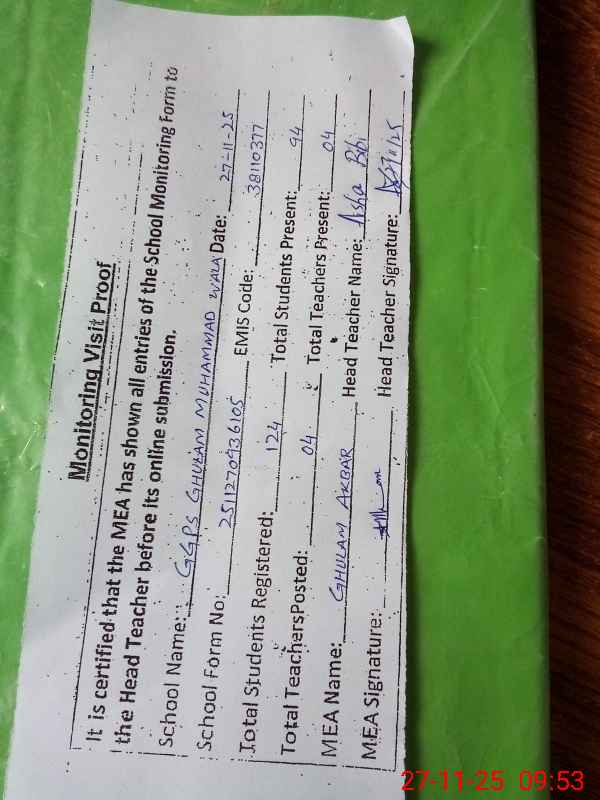 Monitoring Visit Proof
It is certified that the MEA has shown all entries of the School Monitoring Form to
the Head Teacher before its online submission.
School Name: GGPS GHULAM MUHAMMAD WALA Date: 27-11-25
School Form No: 2511270936105 EMIS Code: 38110377
Total Students Registered: 124 Total Students Present: 94
Total Teachers Posted: 04 Total Teachers Present: 04
MEA Name: GHULAM AKBAR Head Teacher Name: Aisha Bibi
MEA Signature: Head Teacher Signature:
27-11-25 09:53